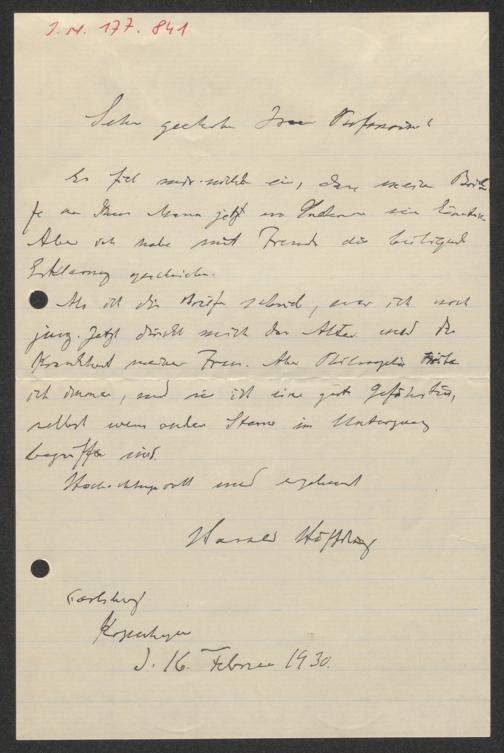 I.N. 177.841
Sehr geehrte Frau Professorin!
Es fiel mir nicht ein, dass meine Brie-
fe an Ihren Mann jetzt
Aber ich habe mit Freude die beiliegende
Erklärung geschrieben.
Als ich die Briefe schrieb, war ich noch
jung. Jetzt drückt mich das Alter und die
Krankheit meiner Frau. Aber Philosophie treibe
ich immer, und sie ist eine gute Gefährtin,
selbst wenn andere Sterne im Untergang
begriffen sind.
Hochachtungsvoll und ergebenst
Harald Höffding
Carlsberg
Kopenhagen
d. 16. Februar 1930.